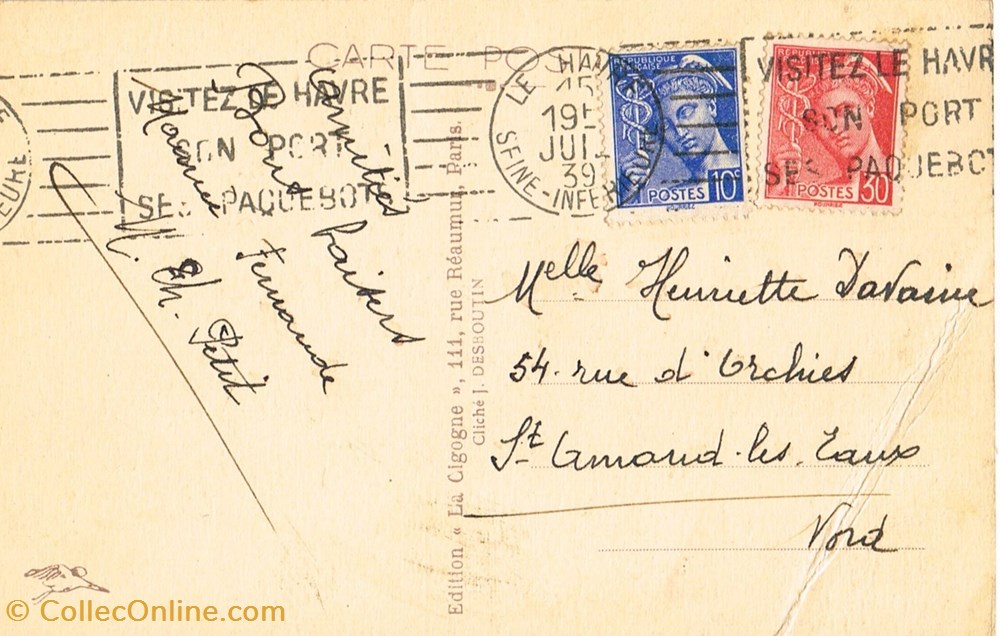 CARTE POS
VISITEZ LE HAVRE
SON PORT
SES PAQUEBOTS
LE HAVRE
15
19
JUIL
39
SEINE-INFERIEURE
RÉPUBLIQUE
FRANÇAISE
POSTES 10c
RÉPUBLIQUE
FRANÇAISE
POSTES 30c
VISITEZ LE HAVR
SON PORT
SES PAQUEBOT
EURE
Amitiés
Bons baisers
Maxence Fernande
M. Ch. Petit
Edition « La Cigogne », 111, rue Réaumur, Paris.
Cliché J. DESBOUTIN
Melle Henriette Davaine
54 rue d'Orchies
St Amand-les-Eaux
Nord
© CollecOnline.com